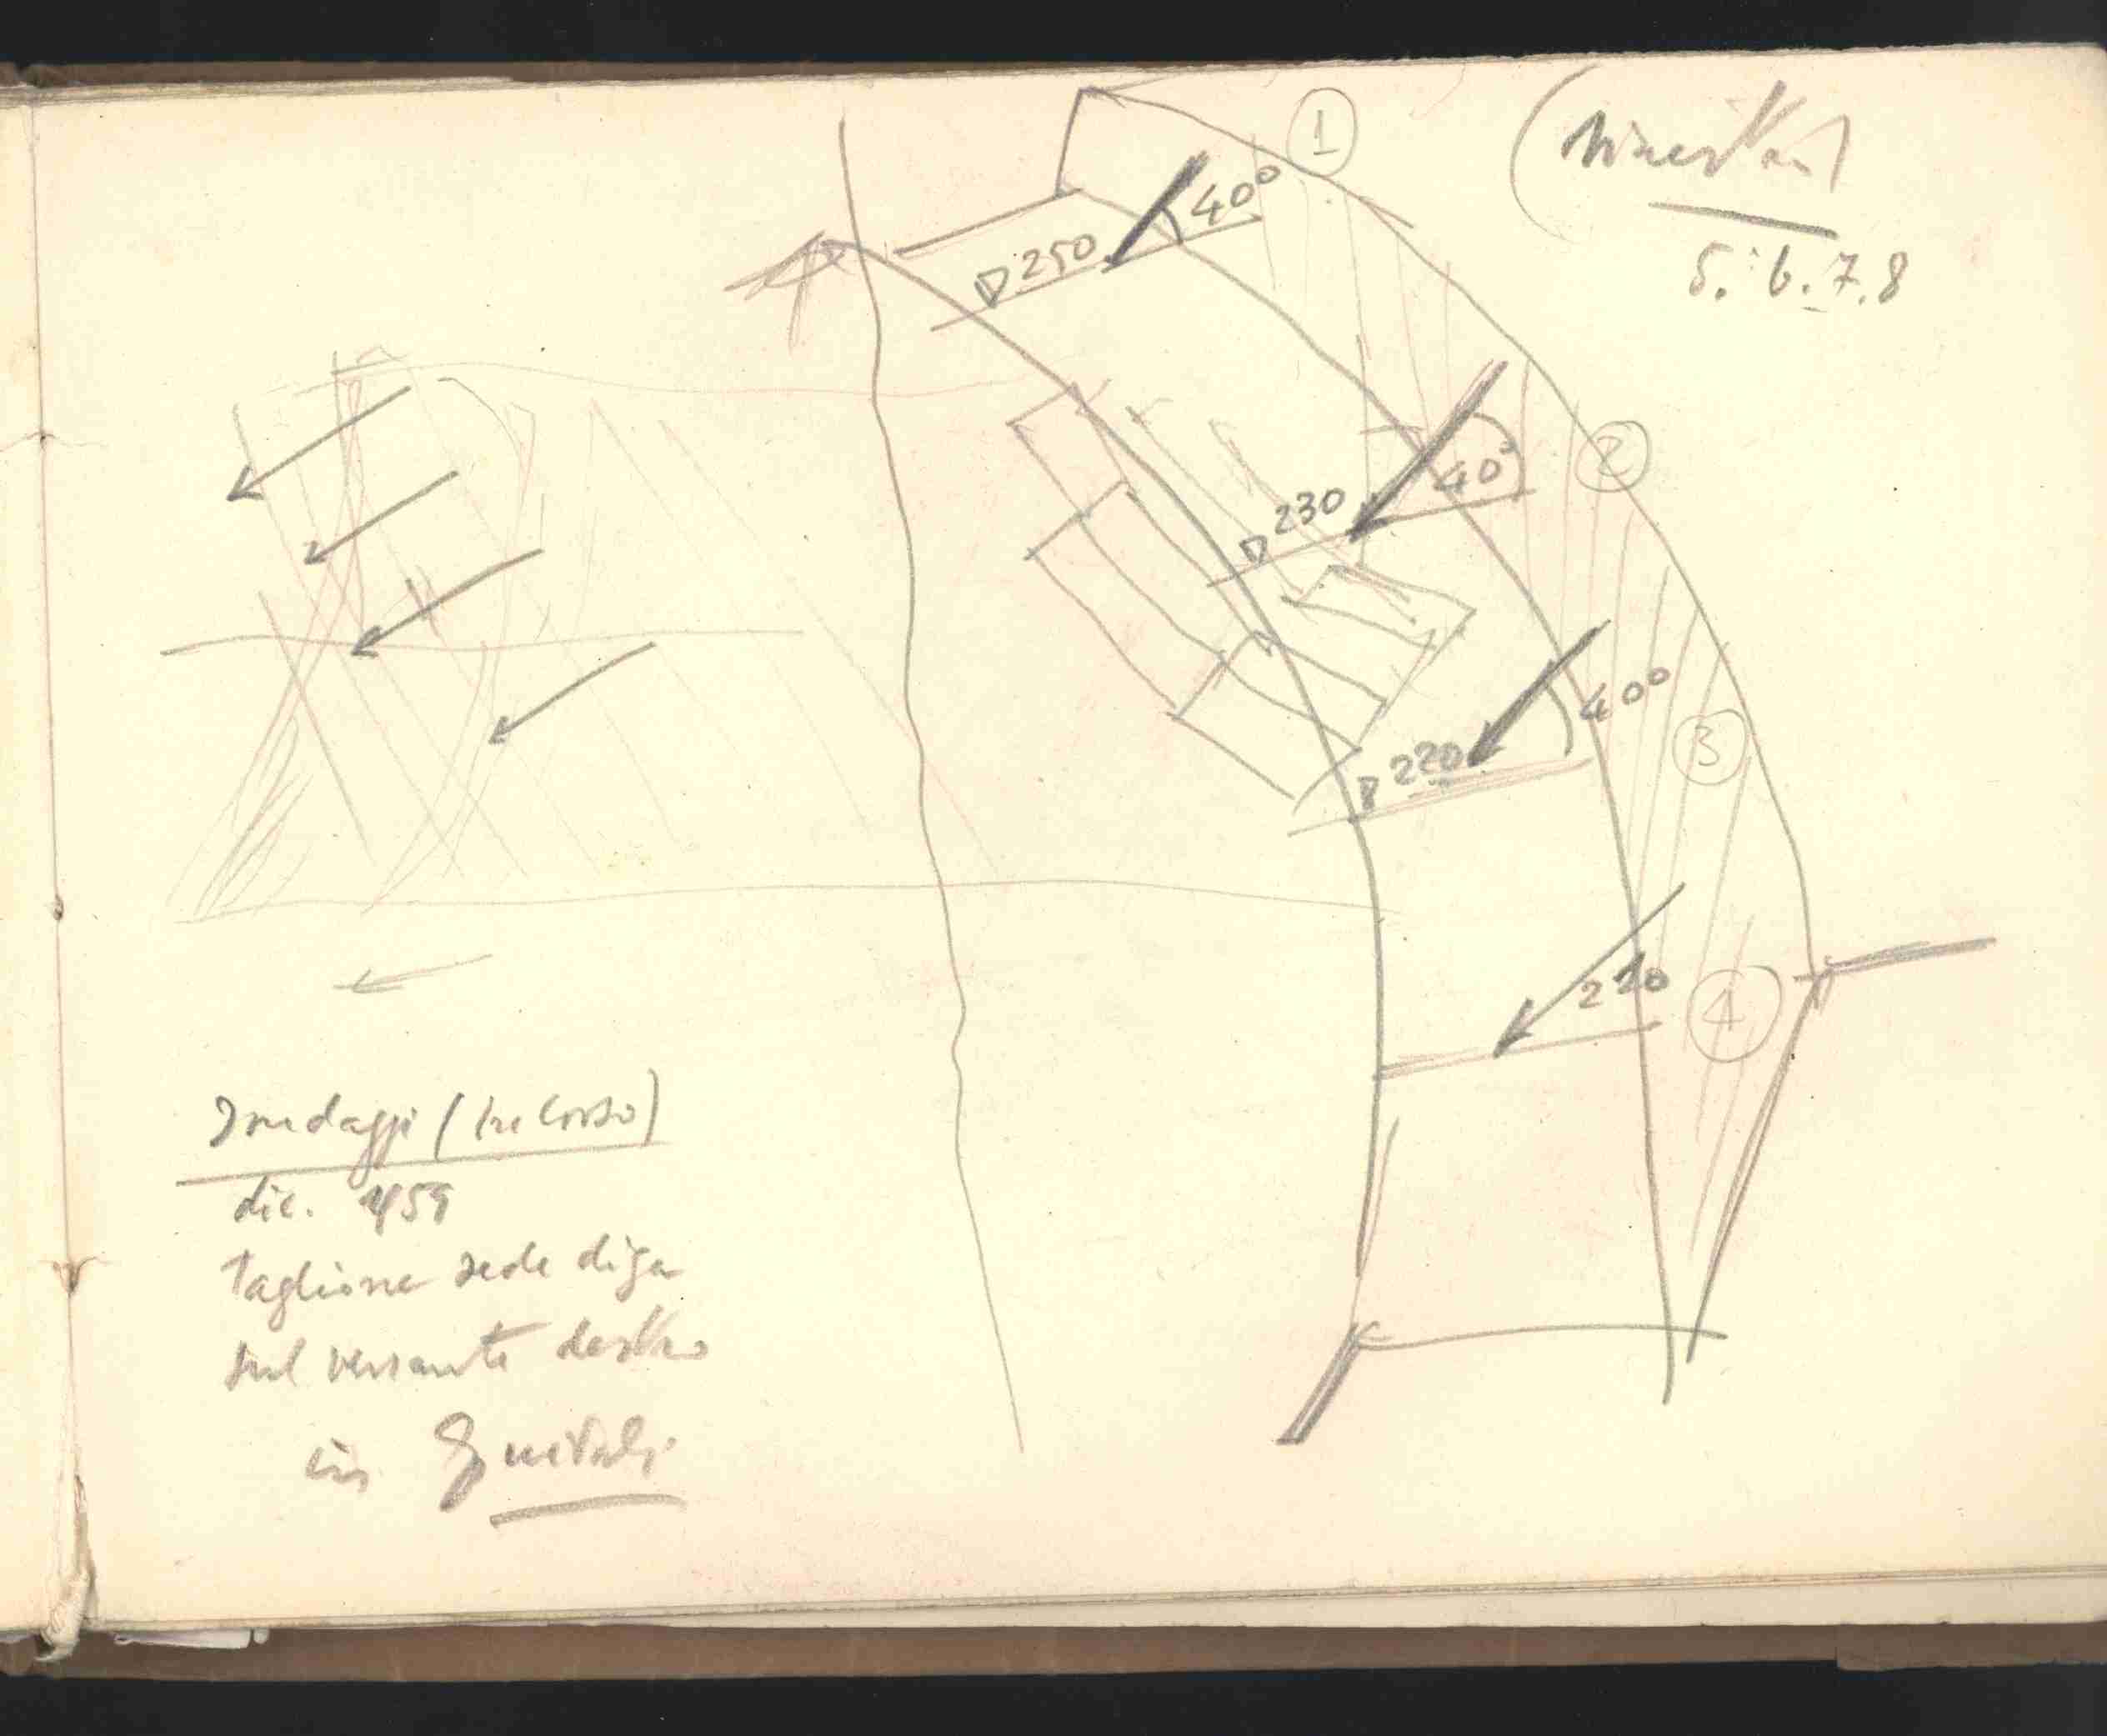 1
(sinistra)
5. 6. 7. 8
40°
250
2
40°
230
40°
3
220
210
4
Sondaggi (in corso)
dic. 459
taglione sede diga
sul versante destro
in